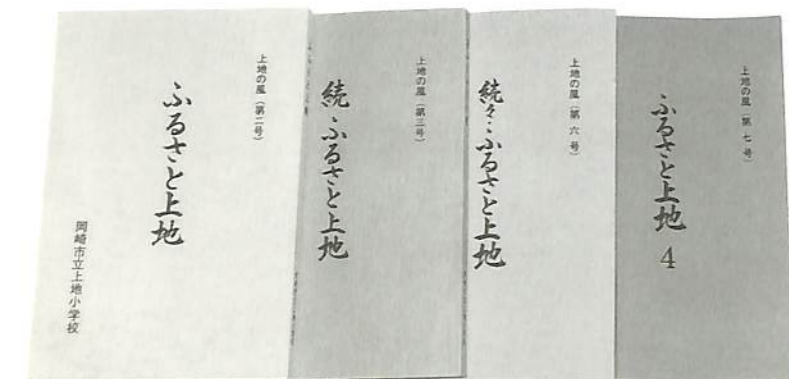 上地の風（第二号）
ふるさと上地
岡崎市立上地小学校
上地の風（第三号）
続・ふるさと上地
上地の風（第六号）
続々・ふるさと上地
上地の風（第七号）
ふるさと上地 4